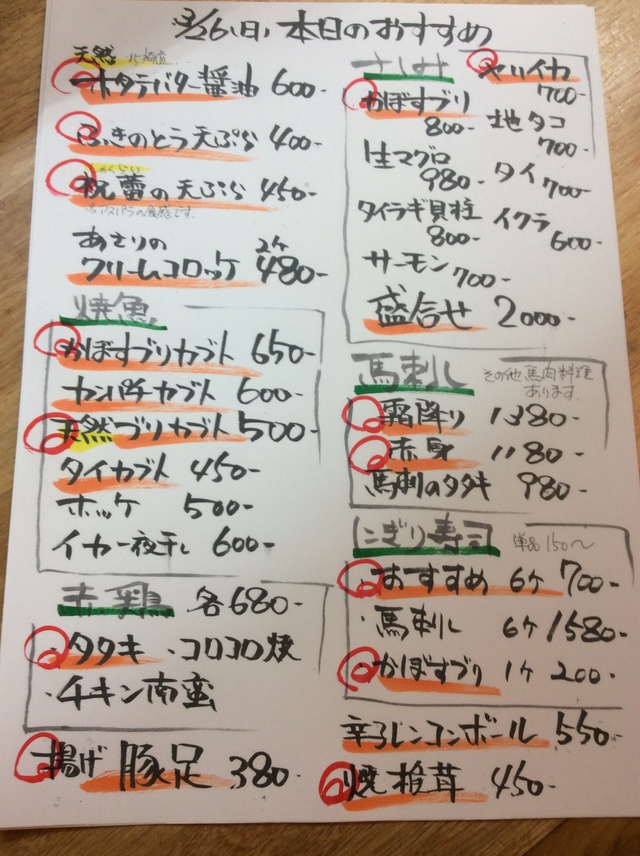 3/26(日)本日のおすすめ
天然 北海道
ホタテバター醤油 600-
ふきのとう天ぷら 400-
祝蕾の天ぷら 450-
あさりの
クリームコロッケ 2ケ 480-
焼魚
かぼすブリカブト 650-
カンパチカブト 600-
天然ブリカブト 500-
タイカブト 450-
ホッケ 500-
イカ一夜干し 600-
赤鶏 各680-
・タタキ ・コロコロ焼
・チキン南蛮
揚げ豚足 380-
さしみ
ヤリイカ 700-
かぼすブリ 800-
地タコ 700-
生マグロ 980-
タイ 700-
タイラギ貝柱 800-
イクラ 600-
サーモン 700-
盛合せ 2000-
馬刺し その他馬肉料理あります。
・霜降り 1380-
・赤身 1180-
馬刺のタタキ 980-
にぎり寿司 単品150〜
・おすすめ 6ケ 700-
・馬刺し 6ケ 1580-
・かぼすブリ 1ケ 200-
辛子レンコンボール 550-
焼椎茸 450-